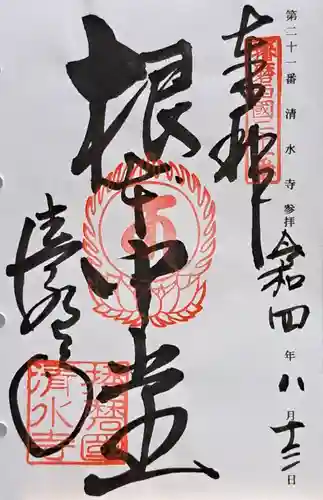 第二十一番 清水寺 参拝 令和四年八月十三日
奉拝
根本中堂
清水寺
播磨國
清水寺